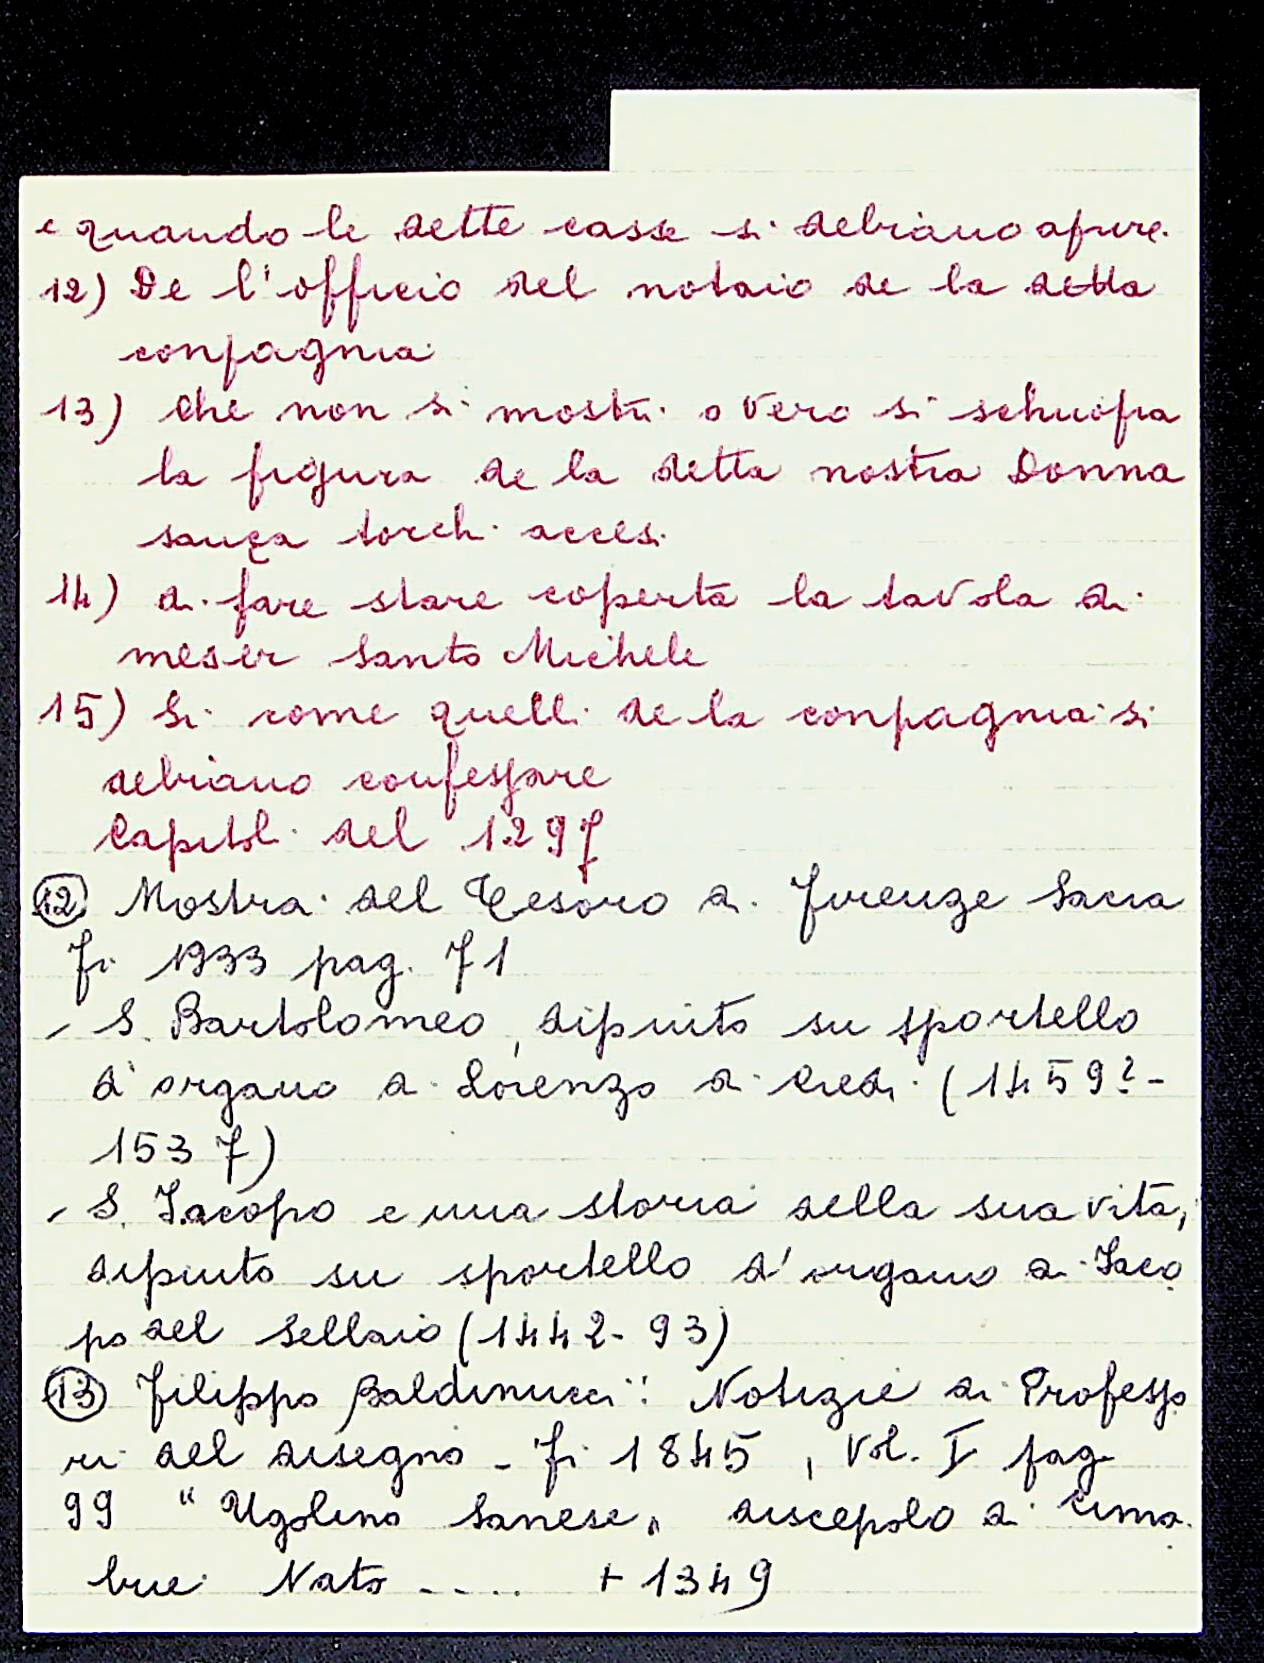 e quando le dette casse si debiano aprire.
12) De l'officio del notaio de la detta
conpagnia
13) Che non si mostri overo si schuopra
la figura de la detta nostra Donna
sança torchi accesi.
14) di fare stare coperta la tavola di
meser Santo Michele
15) Si come quelli de la conpagnia si
debiano confessare
Capitoli del 1297
(12) Mostra del Tesoro di Firenze Sacra
Fi 1933 pag. 71
- S. Bartolomeo, dipinto su sportello
d'organo di Lorenzo di Credi (1459?-
1537)
- S. Iacopo e una storia della sua vita,
dipinto su sportello d'organo di Iaco
po del Sellaio (1442-93)
(13) Filippo Baldinucci: Notizie di Professo
ri del disegno - Fi 1845, Vol. I pag
99 "Ugolino Sanese" discepolo di Cima
bue Nato .... + 1349